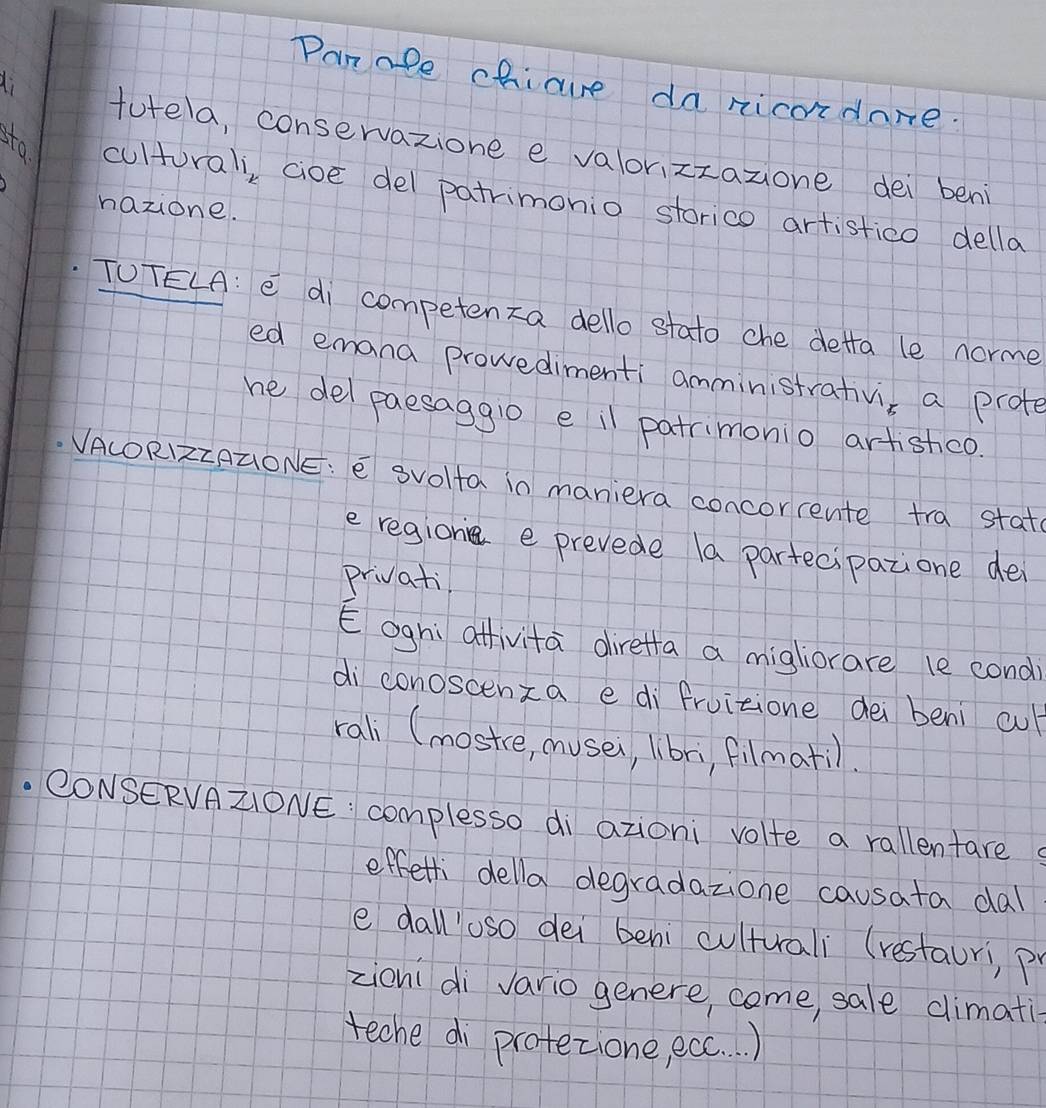 Parole chiave da ricordare.
tutela, conservazione e valorizzazione dei beni
culturali, cioè del patrimonio storico artistico della
nazione.
• TUTELA: è di competenza dello stato che detta le norme
ed emana provvedimenti amministrativi, a prote
ne del paesaggio e il patrimonio artistico.
• VALORIZZAZIONE: è svolta in maniera concorrente tra stato
e regione e prevede la partecipazione dei
privati.
È ogni attività diretta a migliorare le condi
di conoscenza e di fruizione dei beni cult
rali (mostre, musei, libri, filmati).
• CONSERVAZIONE: complesso di azioni volte a rallentare
effetti della degradazione causata dal
e dall'uso dei beni culturali (restauri, pr
zioni di vario genere, come, sale climati-
teche di protezione, ecc....)